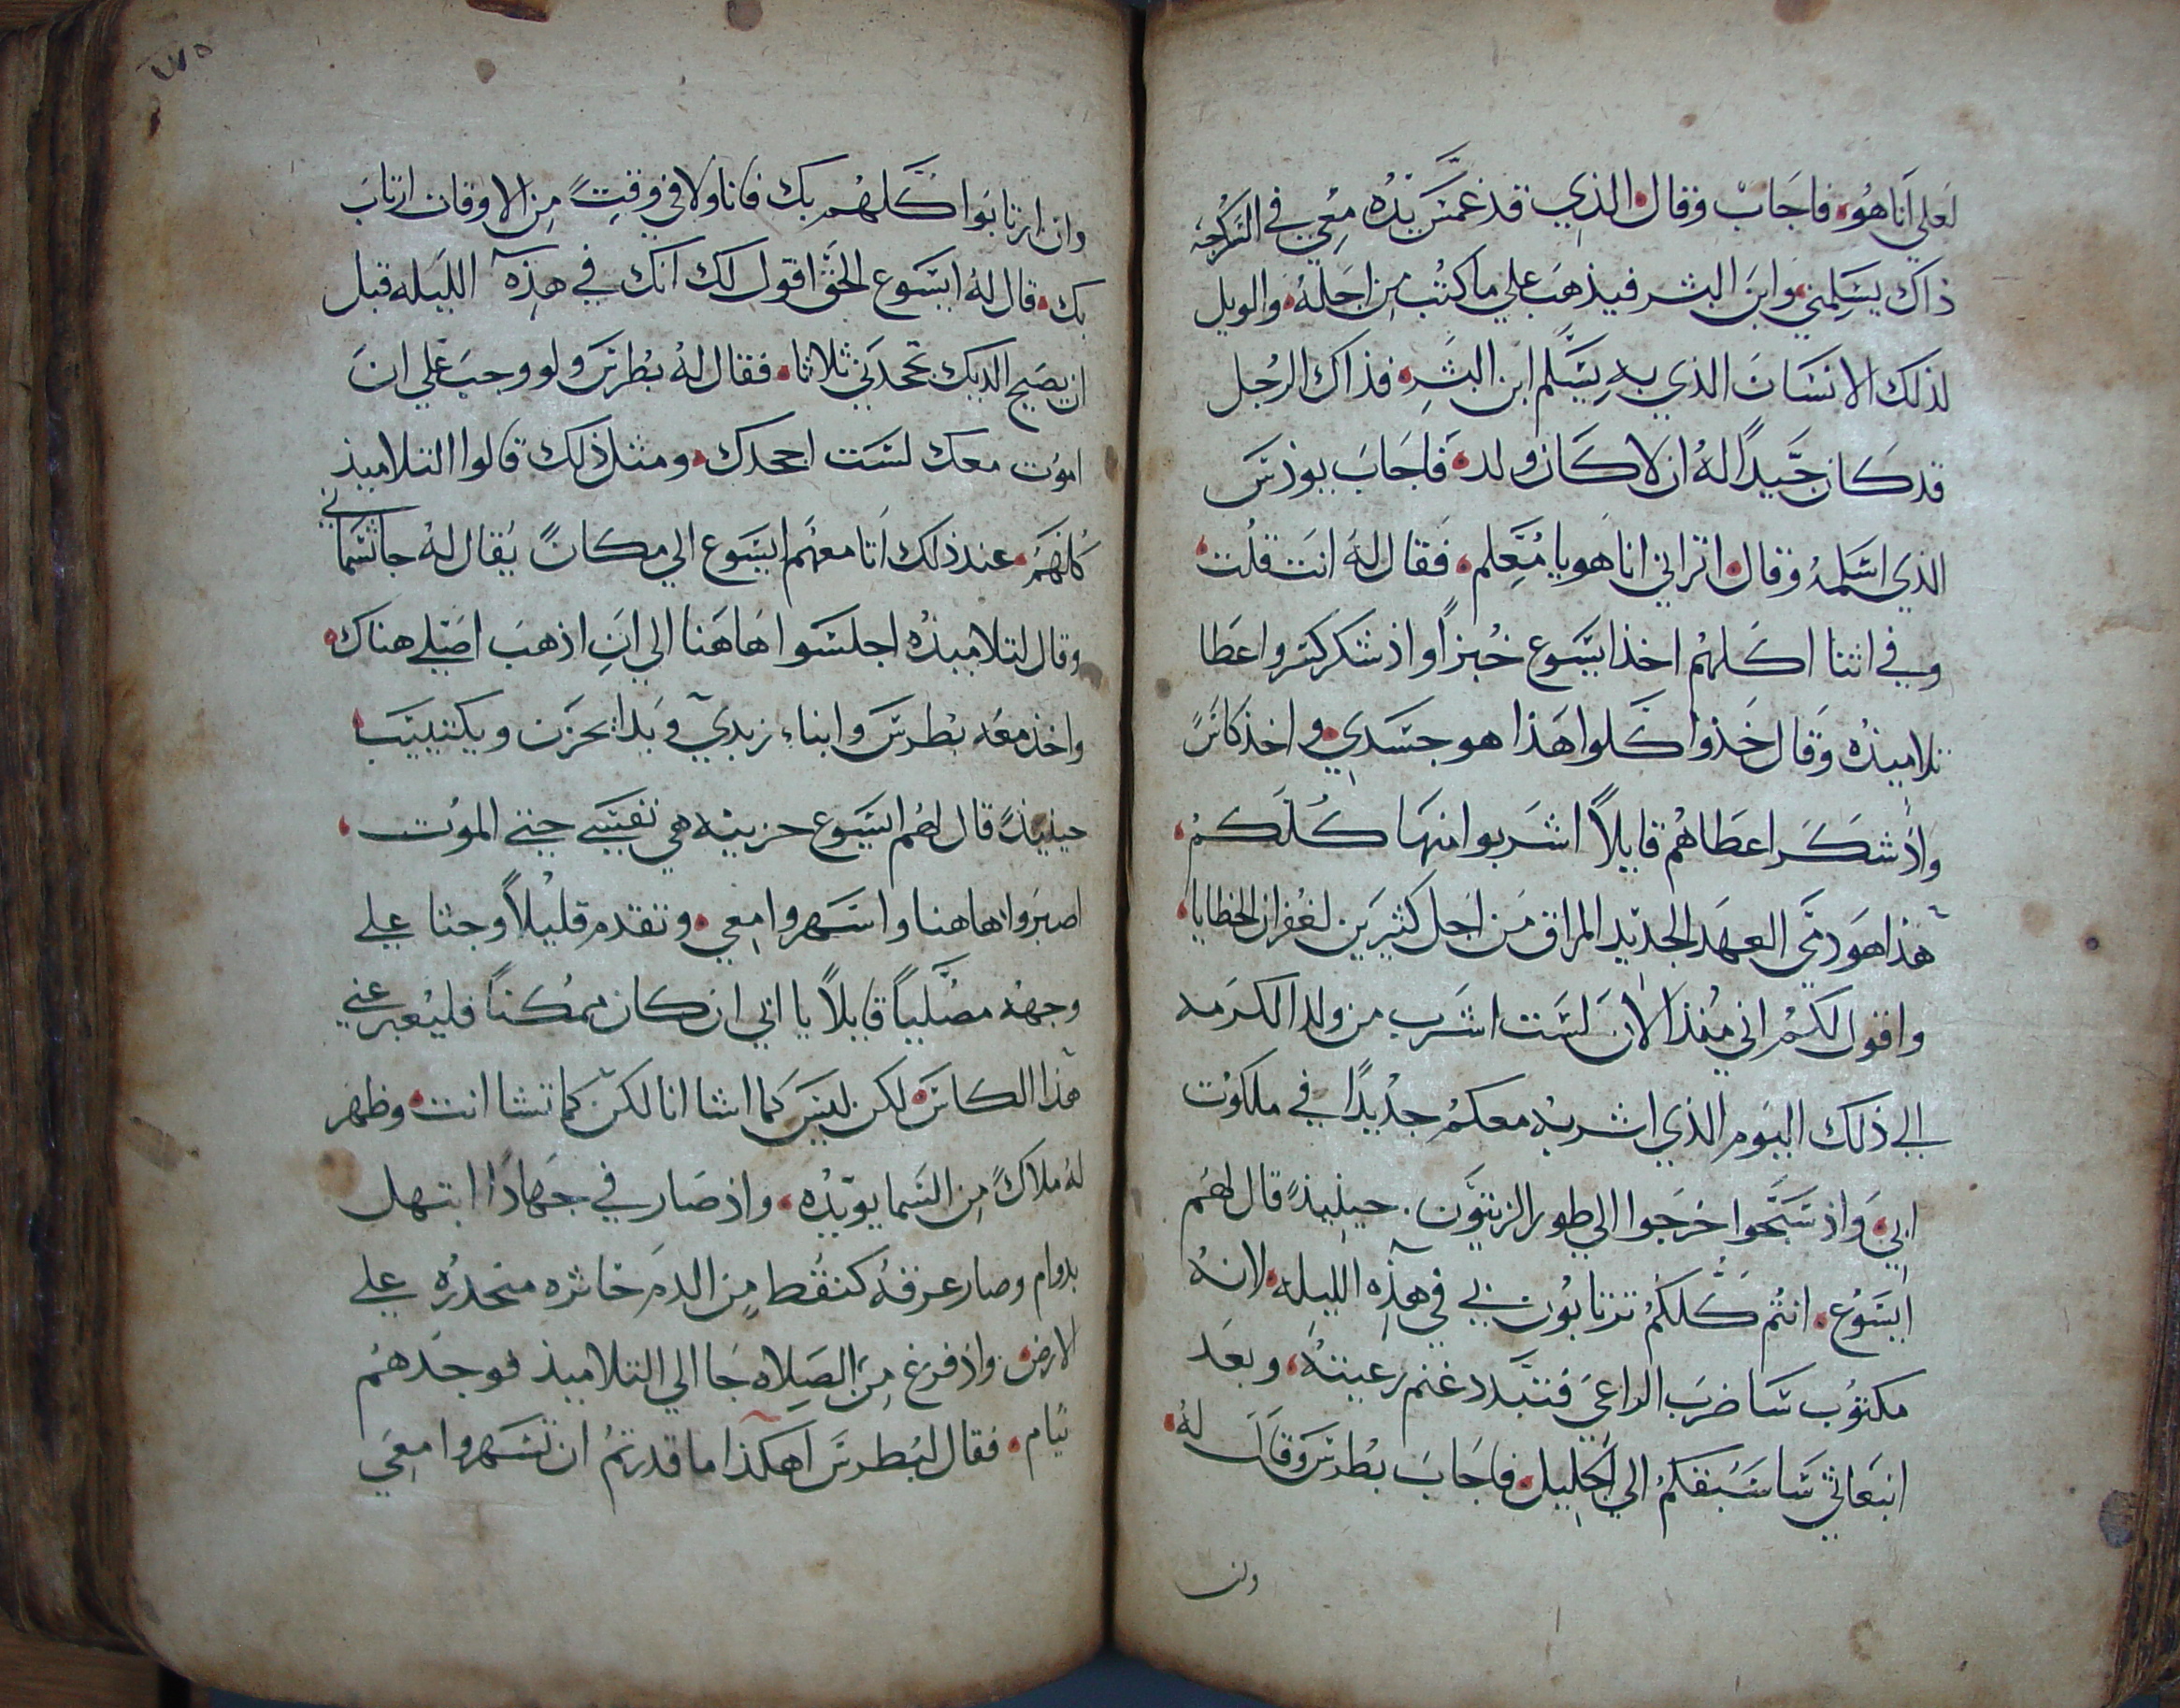 لعلي انا هو، فاجاب وقال الذي قد غمس يده معي في السكرجه
ذاك يسلمني وابن البشر فيذهب علي ما كتب من اجله، والويل
لذلك الانسان الذي به يسلم ابن البشر، فذاك الرجل
قد كان جيداً له ان لا كان ولد، فاجاب يوذس
الذي اسلمه وقال اتراني انا هو يا معلم، فقال له انت قلت،
وفي اثنا اكلهم اخذ ايسوع خبزاً واذ شكر كسر واعطا
تلاميذه وقال خذوا كلوا هذا هو جسدي، واخذ كاسً
واذ شكر اعطاهم قايلاً اشربوا منها كلكم،
هذا هو دمي العهد الجديد المراق من اجل كثيرين لغفران الخطايا،
واقول لكم اني منذ الان لست اشرب من ولد الكرمه
الي ذلك اليوم الذي اشربه معكم جديدًا في ملكوت
ابي، واذ سبحوا خرجوا الي طور الزيتون. حينيذً قال لهم
ايسوع، انتم كلكم ترتابون بي في هذه الليله، لانه
مكتوب سا ضرب الراعي فتتبدد غنم رعيته، وبعد
انبعاثي سا سبقكم الي الجليل، فاجاب بطرس وقال له،
وان
٢٧٥
وان ارتابوا كلهم بك فانا ولا في وقتٍ من الاوقات ارتاب
بك، قال له ايسوع الحق اقول لك انك في هذه الليله قبل
ان يصيح الديك تجحدني ثلاثا، فقال له بطرس ولو وجب علي ان
اموت معك لست اجحدك، ومثل ذلك قالوا التلاميذ
كلهم، عند ذلك اتا معهم ايسوع الي مكانً يقال له جاثسماني
وقال لتلاميذه اجلسوا هاهنا الي ان اذهب اصلي هناك،
واخذ معه بطرس وابناء زبدي وبدا يحزن ويكتيب،
حينيذً قال لهم ايسوع حزينه هي نفسي حتي الموت،
اصبروا هاهنا واسهروا معي، وتقدم قليلاً وجثا علي
وجهه مصلياً قايلاً يا ابي ان كان ممكناً فليعبر عني
هذا الكاس، لكن ليس كما اشا انا لكن كما تشا انت، وظهر
له ملاكً من السما يويده، واذ صار في جهادًا ابتهل
بدوام وصار عرقه كنقط من الدم خاثره منحدره علي
الارض، واذ فرغ من الصلاه جا الي التلاميذ فوجدهم
نيام، فقال لبطرس اهكذا ما قدرتم ان تسهروا معي